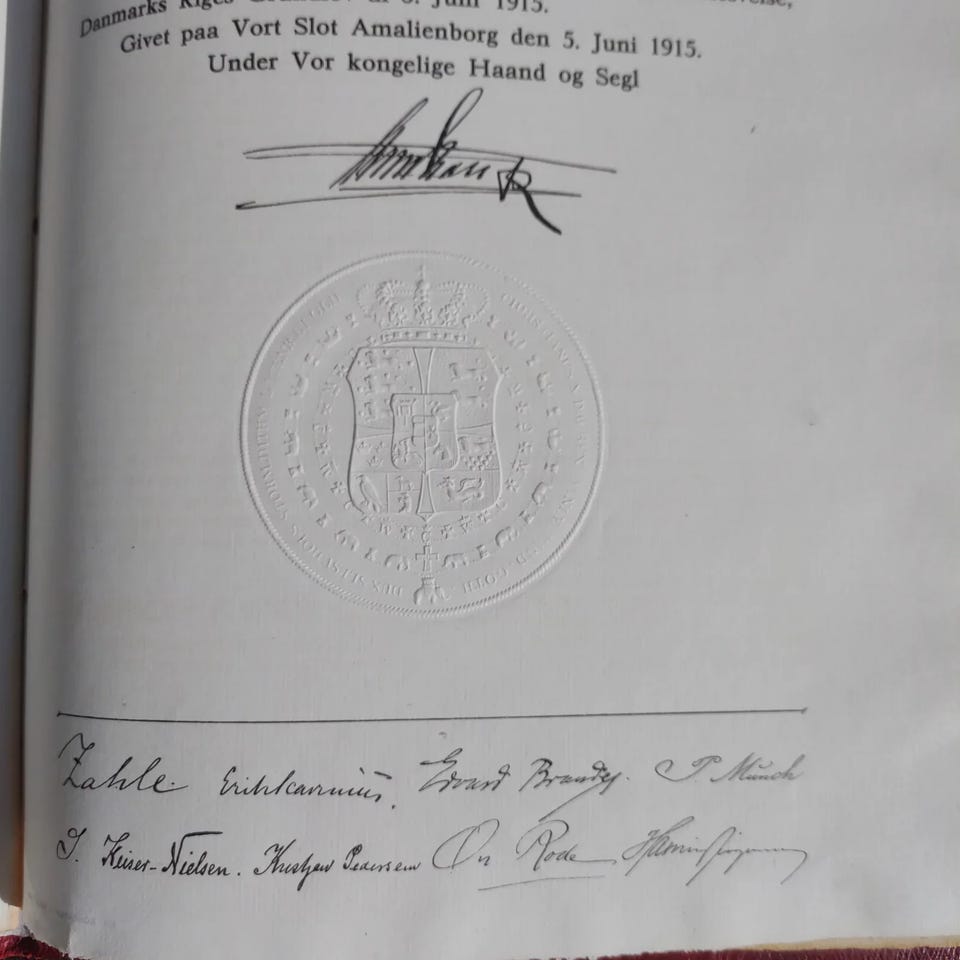 Danmarks Riges Grundlov af 5. Juni 1915.
Givet paa Vort Slot Amalienborg den 5. Juni 1915.
Under Vor kongelige Haand og Segl
Christian R
Zahle. Erik Scavenius. Edvard Brandes. P. Munch
J. Keiser-Nielsen. Kristjan Pedersen Ove Rode